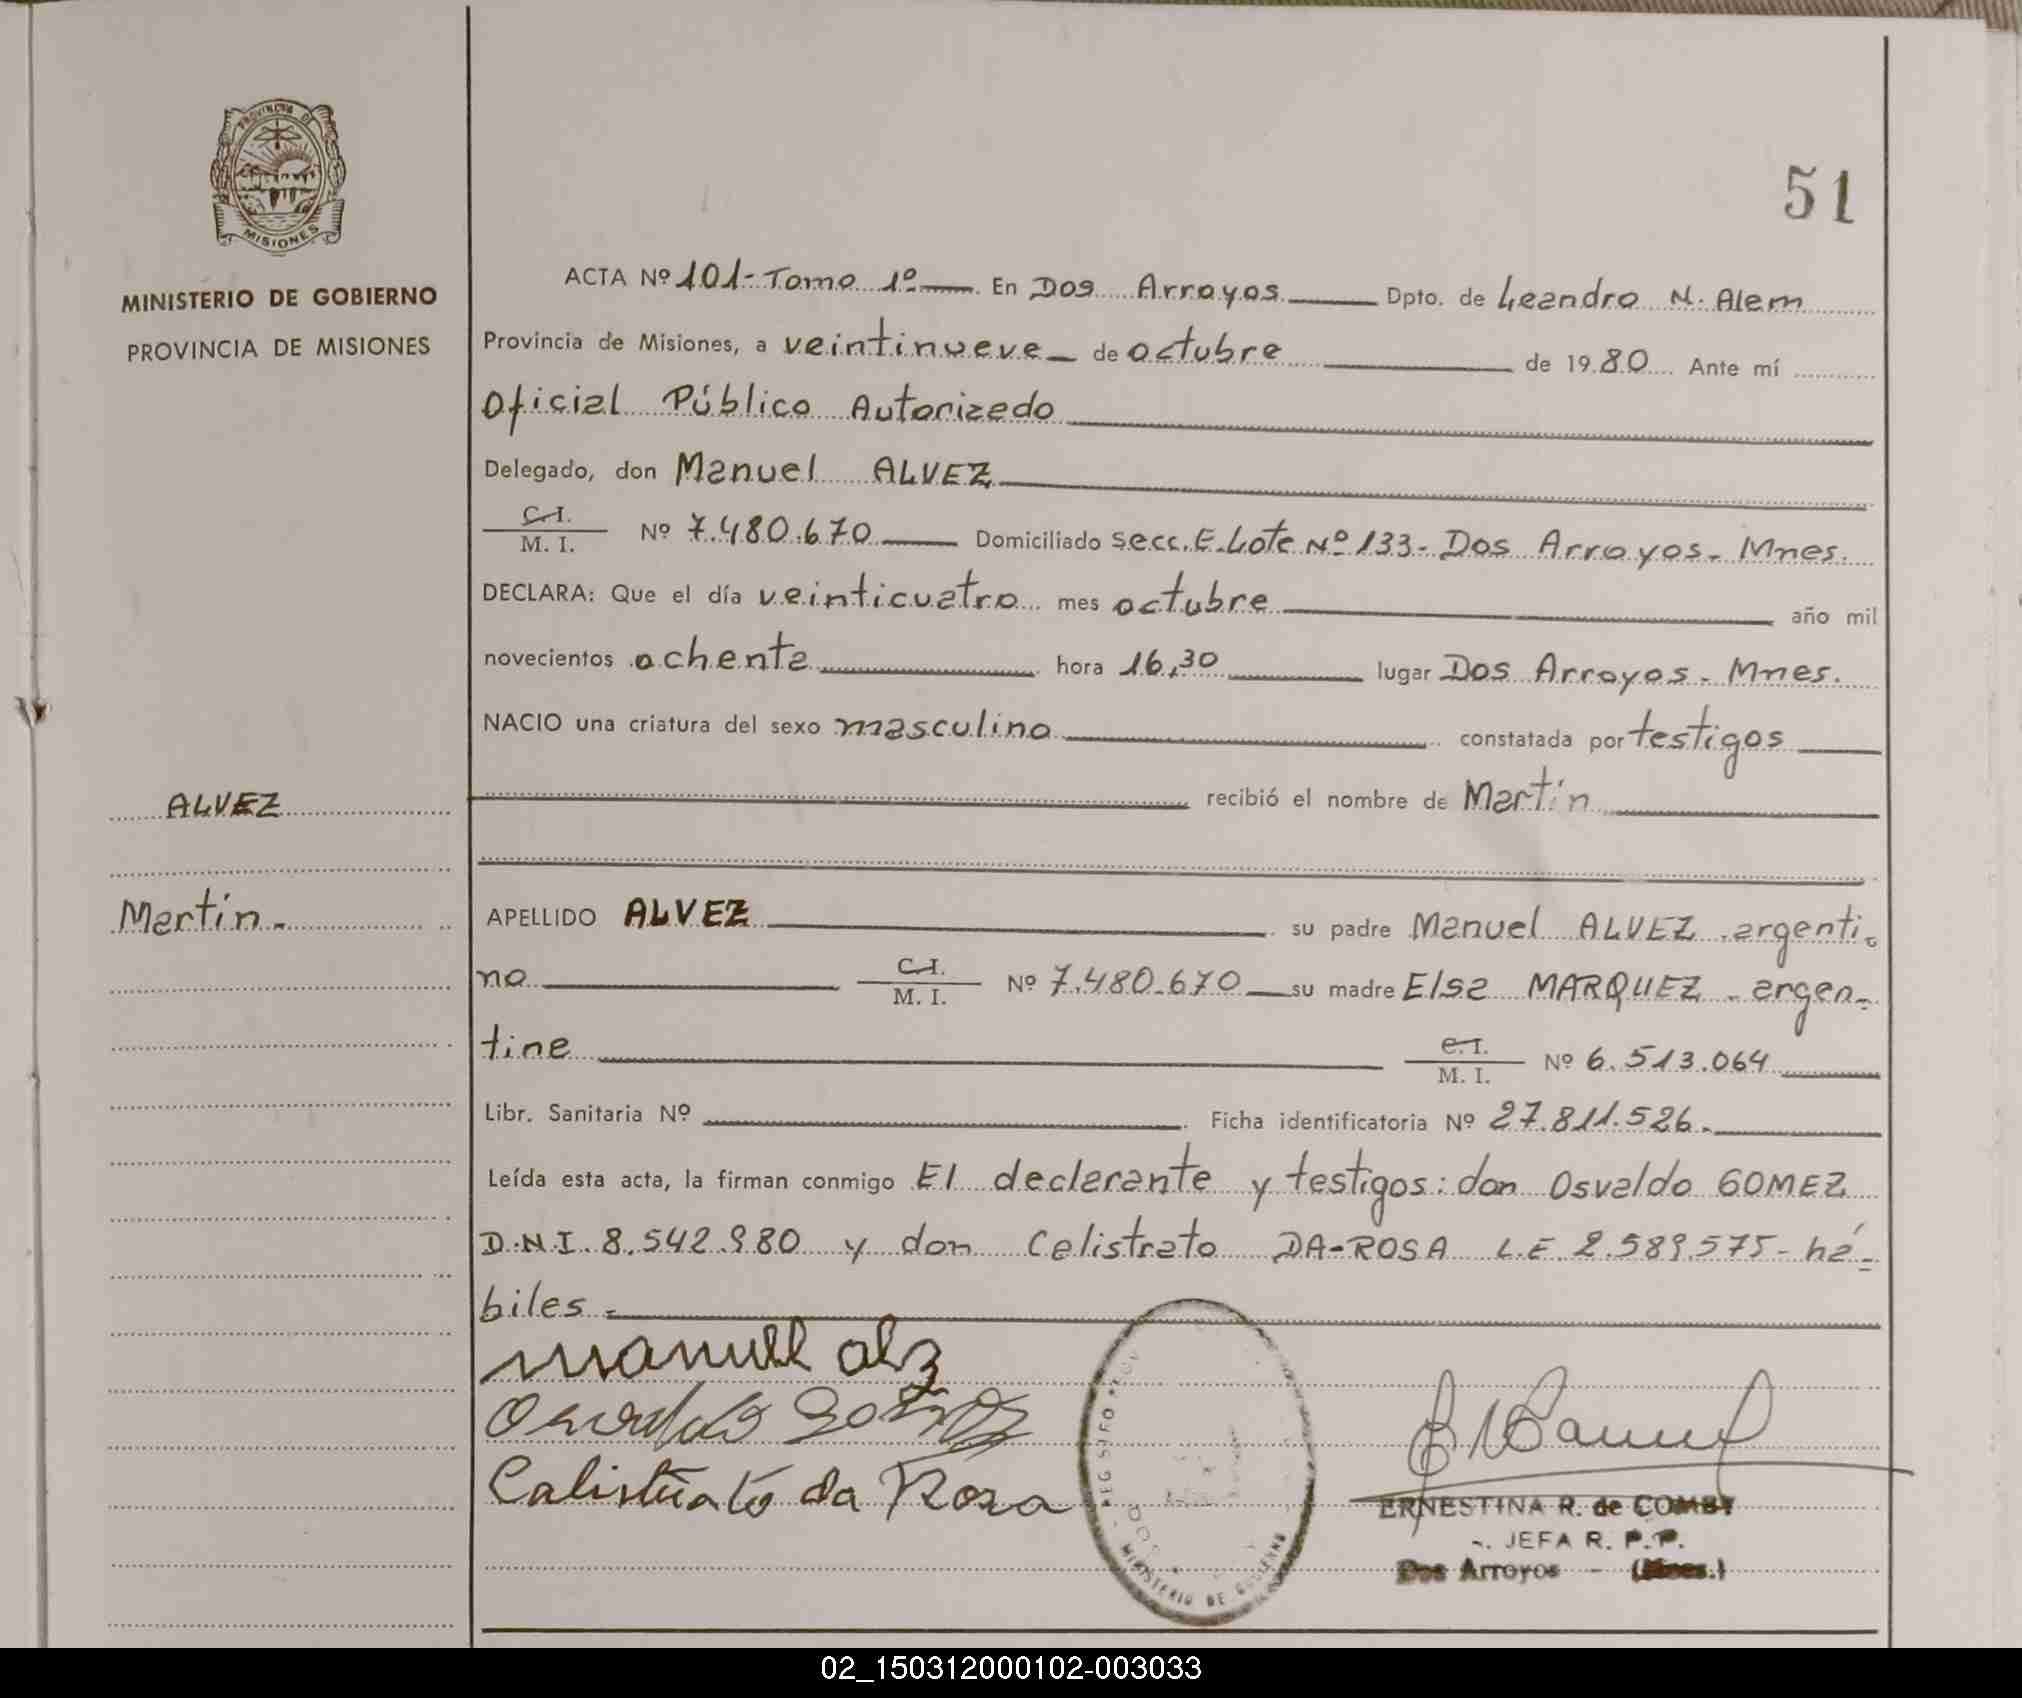 PROVINCIA DE
MISIONES
MINISTERIO DE GOBIERNO
PROVINCIA DE MISIONES
51
ACTA Nº 101-Tomo 1º En Dos Arroyos Dpto. de Leandro N. Alem
Provincia de Misiones, a veintinueve de octubre de 1980 Ante mí
Oficial Público Autorizado
Delegado, don Manuel ALVEZ
C.I.
M. I. Nº 7.480.670 Domiciliado secc. E. Lote Nº 133- Dos Arroyos - Mnes.
DECLARA: Que el día veinticuatro mes octubre año mil
novecientos ochenta hora 16,30 lugar Dos Arroyos - Mnes.
NACIO una criatura del sexo masculino constatada por testigos
recibió el nombre de Martín
ALVEZ
Martín.-
APELLIDO ALVEZ su padre Manuel ALVEZ argenti-
no C.I. M. I. Nº 7.480.670 su madre Elsa MARQUEZ - argen-
tina C.I. M. I. Nº 6.513.064
Libr. Sanitaria Nº Ficha identificatoria Nº 27.811.526.-
Leída esta acta, la firman conmigo El declarante y testigos: don Osvaldo GOMEZ
D.N.I. 8.542.980 y don Celistrato DA-ROSA L.E 2.589.575- há-
biles.-
manuel alz
Osvaldo Gomez
Calistrato da Rosa
REGISTRO PROV
DOS
MINISTERIO DE GOBIERNO
ERNESTINA R. de COMBY
JEFA R. P. P.
Dos Arroyos - (Mnes.)
02_150312000102-003033